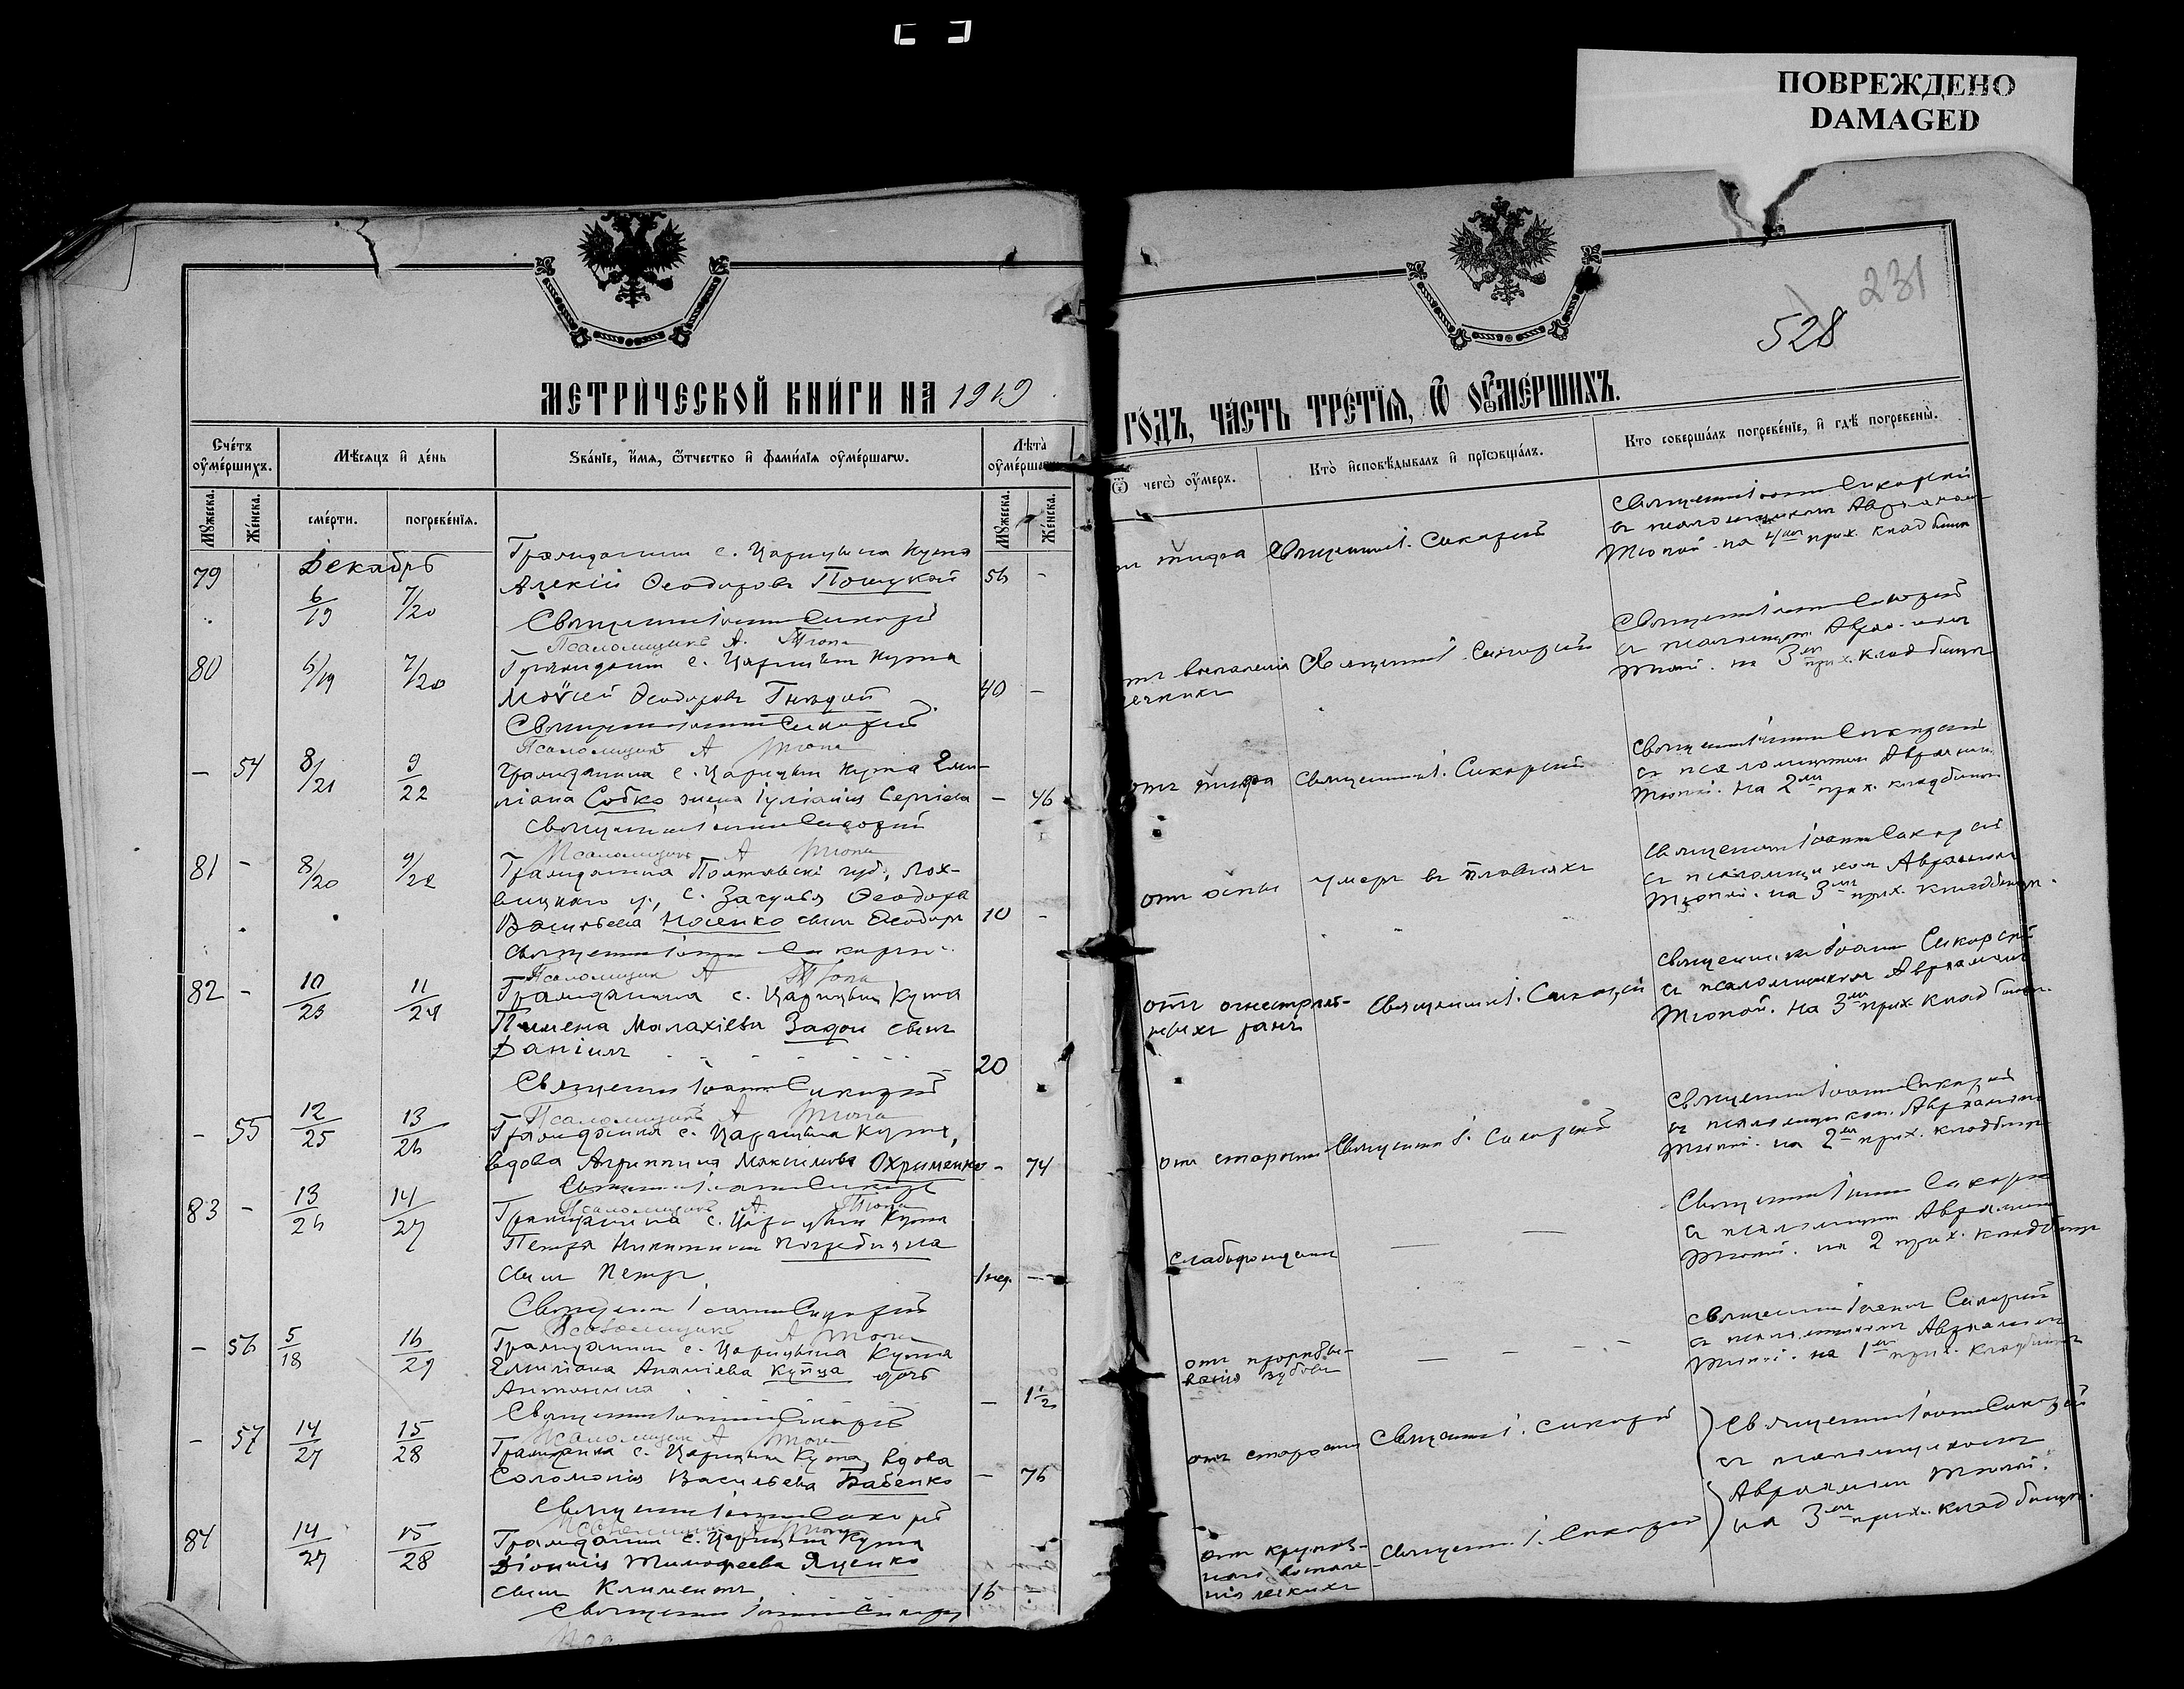 ПОВРЕЖДЕНО
DAMAGED
231
528
МЕТРИЧЕСКОЙ КНИГИ НА 1919
ГОДЪ, ЧАСТЬ ТРЕТІЯ, Ѿ ОУМЕРШИХЪ.
Счетъ оумершихъ.
Мѣсяцъ и день
Званіе, имя, ѿчество и фамилія оумершагѡ.
Лѣта
Ѿ чегѡ оумеръ.
Кто исповѣдывалъ и пріѡбщалъ.
Кто совершалъ погребеніе, и гдѣ погребены.
Мужеска.
Женска.
смерти.
погребенія.
Мужеска.
Женска.
Декабрь
79
6/19
7/20
Гражданинъ с. Царицына Кута
Алексій Ѳеодоровъ
56 -
Священникъ Іоаннъ Сикорскій
Псаломщикъ А. Тюпа
отъ тифа
Священникъ І. Сикорскій
Священникъ Іоаннъ Сикорскій
съ псаломщикомъ Авраамомъ
Тюпой. на 4мъ прих. кладбищѣ
80
6/19
7/20
Гражданинъ с. Царицына Кута
Мойсей Ѳеодоровъ Гнѣдой
40 -
Священникъ Іоаннъ Сикорскій
Псаломщикъ А Тюпа
отъ воспаленія
Священникъ І. Сикорскій
Священникъ Іоаннъ Сикорскій
съ псаломщикомъ Авраамомъ
Тюпой. на 3мъ прих. кладбищѣ
- 54
8/21
9/22
Гражданина с. Царицына Кута Еми-
ліана Собко жена Іуліанія Сергіева
- 46
Священникъ Іоаннъ Сикорскій
Псаломщикъ А Тюпа
отъ тифа
Священникъ І. Сикорскій
Священникъ Іоаннъ Сикорскій
съ псаломщикомъ Авраамомъ
Тюпой. на 2мъ прих. кладбищѣ
81 -
8/20
9/22
Гражданина Полтавскі губ., Лох-
вицкаго у., с. Ѳеодора
Васильева Носенко сынъ Ѳеодоръ
10 -
Священникъ Іоаннъ Сикорскій
Псаломщикъ А Тюпа
отъ оспы
умеръ въ плавняхъ
Священникъ Іоаннъ Сикорскій
съ псаломщикомъ Авраамомъ
Тюпой. на 3мъ прих. кладбищѣ.
82 -
10/23
11/24
Гражданина с. Царицына Кута
Пимена Малахіева Задои сынъ
Даніилъ
20
Священникъ Іоаннъ Сикорскій
Псаломщикъ А Тюпа
отъ огнестрѣль-
ныхъ ранъ
Священникъ І. Сикорскій
Священникъ Іоаннъ Сикорскій
съ псаломщикомъ Авраамомъ
Тюпой. на 3мъ прих. кладбищѣ.
- 55
12/25
13/26
Гражданка с. Царицына Кута,
вдова Агриппина Максимова Охрименко
- 74
Священникъ Іоаннъ Сикорскій
Псаломщикъ А. Тюпа
отъ старости
Священникъ І. Сикорскій
Священникъ Іоаннъ Сикорскій
съ псаломщикомъ Авраамомъ
Тюпой. на 2мъ прих. кладбищѣ
83 -
13/26
14/27
Гражданина с. Царицына Кута
Петра Никитина
сынъ Петръ
1 нед. -
Священникъ Іоаннъ Сикорскій
Псаломщикъ А Тюпа
Священникъ Іоаннъ Сикорскій
съ псаломщикомъ Авраамомъ
Тюпой. на 2 прих. кладбищѣ
- 56
5/18
16/29
Гражданина с. Царицына Кута
Емиліана Ананіева Купца дочь
Антонина
- 1 1/2
Священникъ Іоаннъ Сикорскій
Псаломщикъ А Тюпа
отъ прорѣзы-
ванія зубовъ
Священникъ Іоаннъ Сикорскій
съ псаломщикомъ Авраамомъ
Тюпой. на 1мъ прих. кладбищѣ
- 57
14/27
15/28
Гражданка с. Царицына Кута, вдова
Соломонія Васильева Бабенко
- 76
Священникъ Іоаннъ Сикорскій
Псаломщикъ А Тюпа
отъ старости
Священникъ І. Сикорскій
Священникъ Іоаннъ Сикорскій
съ псаломщикомъ
Авраамомъ Тюпой.
на 3мъ прих. кладбищѣ.
84
14/27
15/28
Гражданина с. Царицына Кута
Діонисія Тимофеева Яценко
сынъ Климентъ
16
Священникъ Іоаннъ Сикорскій
отъ крупоз-
наго воспале-
нія легкихъ
Священникъ І. Сикорскій